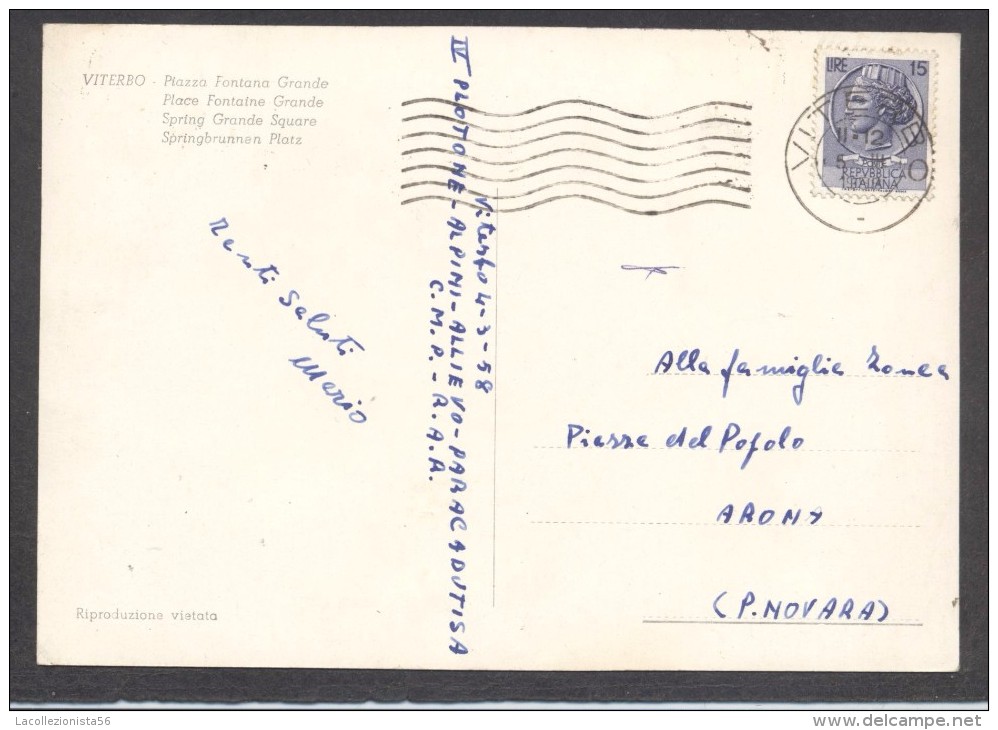 VITERBO - Piazza Fontana Grande
Place Fontaine Grande
Spring Grande Square
Springbrunnen Platz
LIRE 15
REPVBBLICA
ITALIANA
VITERBO
11-12
5 III
Viterbo 4-3-58
IV PLOTONE-ALPINI-ALLIEVO-PARACADUTISA
C.M.P.-R.A.R.
Saluti
Mario
Alla famiglia Zonca
Piazza del Popolo
ARONA
(P. NOVARA)
Riproduzione vietata
Lacollezionista56
delcampe.net